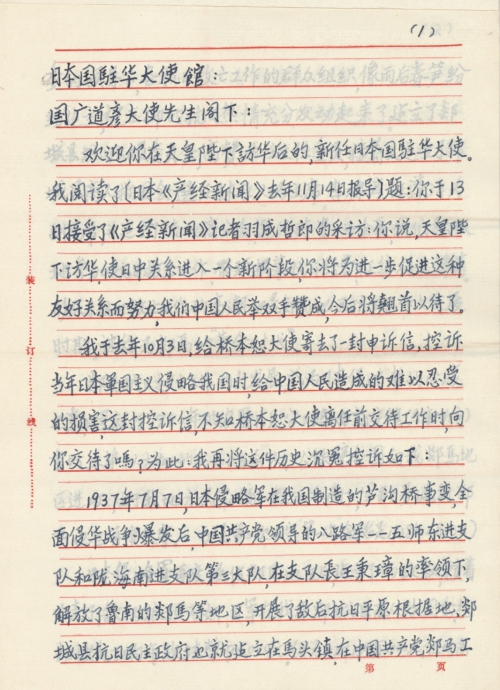 (1)
日本国駐华大使館：
国广道彦大使先生阁下：
欢迎你在天皇陛下訪华后的，新任日本国駐华大使。
我阅读了(日本《产经新闻》去年11月14日报导)题：你于13
日接受了《产经新闻》记者羽成哲郎的采访：你说，天皇陛
下访华，使日中关系进入一个新阶段，你将为进一步促进这种
友好关系而努力，我们中国人民举双手赞成，今后将翹首以待了。
我于去年10月3日，给桥本恕大使寄去了一封申诉信，控訴
当年日本軍国主义侵略我国时，给中国人民造成的难以忍受
的损害这封控訴信，不知桥本恕大使离任前交待工作时，向
你交待了嗎？为此：我再将这件历史沉冤控訴如下：
1937年7月7日，日本侵略军在我国制造的芦沟桥事变，全
面侵华战争爆发后，中国共产党领导的八路军一一五师东进支
队和陇、海南进支队第三大队，在支队長王秉璋的率领下，
解放了鲁南的郯馬等地区，开展了敌后抗日平原根据地、郯
城县抗日民主政府也就建立在馬头镇，在中国共产党郯马工
装
订
线
第 页